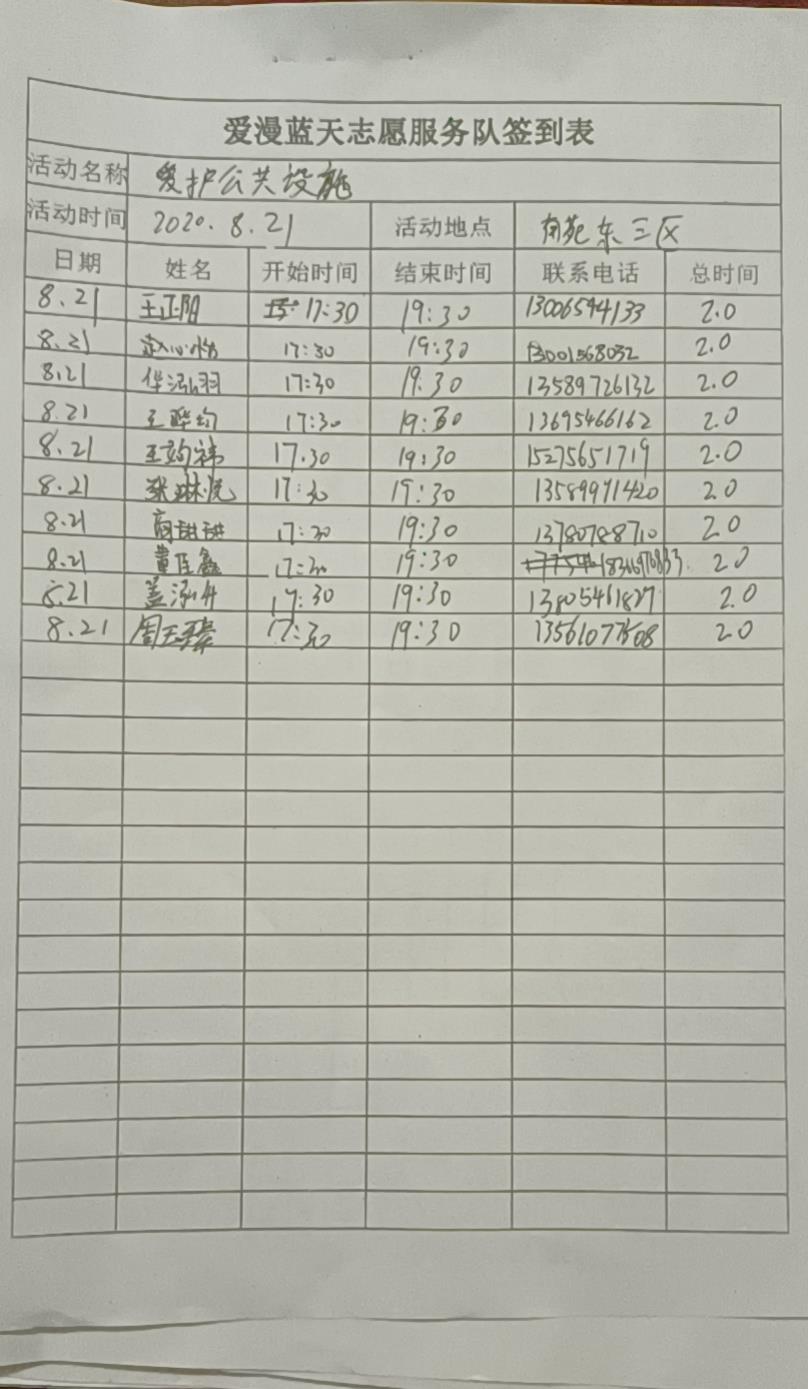 爱漫蓝天志愿服务队签到表
活动名称 爱护公共设施
活动时间 2020.8.21 活动地点 东三区
日期 姓名 开始时间 结束时间 联系电话 总时间
8.21 王正阳 17:30 19:30 13006594133 2.0
8.21 赵心怡 17:30 19:30 13001568032 2.0
8.21 华泓羽 17:30 19:30 13589726132 2.0
8.21 王晔均 17:30 19:30 13695466162 2.0
8.21 17.30 19:30 15275651719 2.0
8.21 张琳悦 17:30 19:30 13589971420 2.0
8.21 17:30 19:30 13780788710 2.0
8.21 黄佳鑫 17:30 19:30 2.0
8.21 盖泓舟 17:30 19:30 13805461827 2.0
8.21 17:30 19:30 2.0